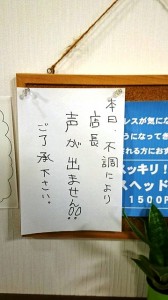 本日、不調により
店長
声が出ません!!
ご了承下さい。
レスが気にな
うになってき
される方にお
スッキリ!
スヘッド
1500円